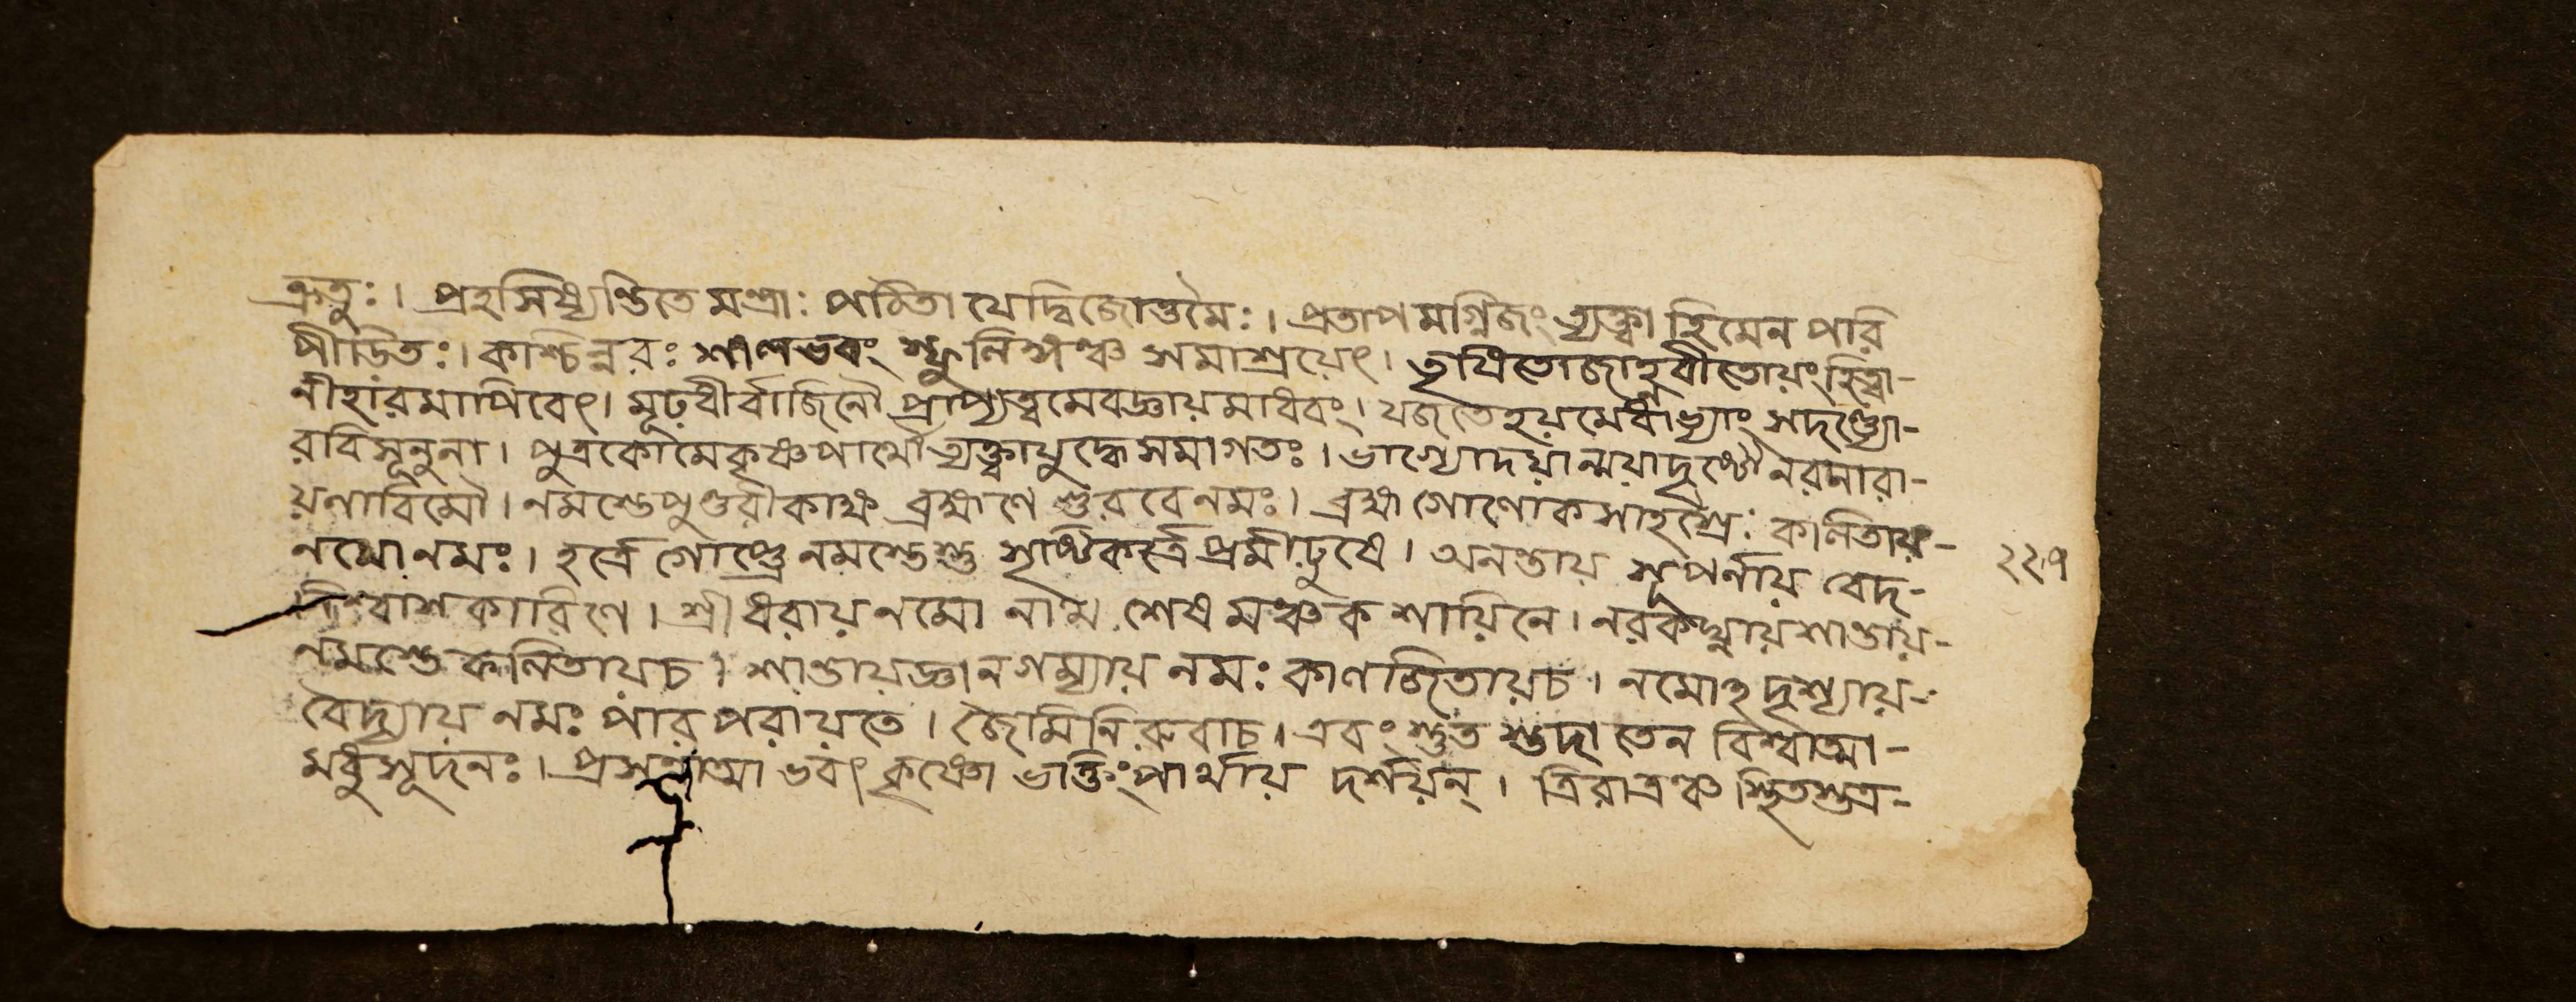 ক্রতুঃ। প্রহসিষ্যন্তিতে মন্ত্রাঃ পঠিতা যেদ্বিজোত্তমৈঃ। প্রতাপমগ্নিজং ত্যক্ত্বা হিমেন পরি
পীডিতঃ। কাশ্চিন্নরঃ শালভবং স্ফুলিঙ্গঞ্চ সমাশ্রয়েৎ। তৃষিতোজাহ্নবীতোয়ং হিত্বা-
নীহারমাপিবেৎ। মূঢ়ধীর্বাজিনৌ প্রাপ্যত্বমেবজ্ঞায়মাধবং। যজতেহয়মেধাভ্যাং সদণ্ড্যো-
রবিসূনুনা। পুত্রকৌমৈকৃষ্ণপার্থৌ ত্যক্ত্বাযুদ্ধেসমাগতঃ। ভাগ্যোদয়ান্ময়াদৃষ্টৌ নরনারা-
য়ণাবিমৌ। নমস্তেপুণ্ডরীকাক্ষ ব্রহ্মণে গুরবেনমঃ। ব্রহ্মগোলোকসাহস্রৈঃ কলিতায়-
নমোনমঃ। হর্ত্রে গোপ্ত্রে নমস্তেস্তু সৃষ্টিকর্ত্রে প্রমীঢুষে। অনন্তায় সুপর্নায় বেদ-
নিঃবাশকারিণে। শ্রীধরায়নমো নাম শেষমঞ্চক শায়িনে। নরকঘ্নায়শান্তায়-
নমস্তে কলিতায়চ। শান্তায়জ্ঞানগম্যায় নমঃ কালজিতায়চ। নমোঽদৃশ্যায়-
বৈদ্যায় নমঃ পার পরায়তে। জৈমিনিরুবাচ। এবং স্তুত স্তুদা তেন বিশ্বাত্মা-
মধুসূদনঃ। প্রসন্নাত্মা ভবৎ কৃষ্ণো ভক্তিংপার্থায় দর্শয়ন্। ত্রিরাত্রঞ্চ স্থিতস্তত্র-
২২৭